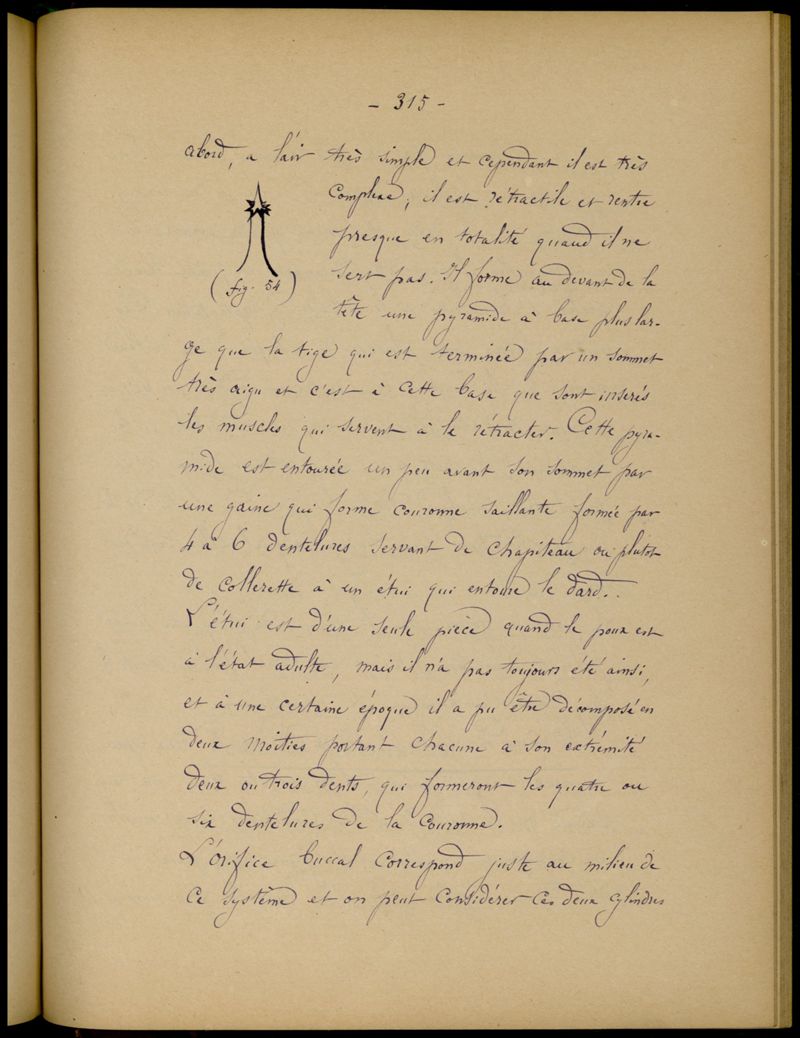 - 315 -
abord, a l'air très simple et cependant il est très
complexe, il est rétractile et rentre
presque en totalité quand il ne
sert pas. Il forme au devant de la
(fig. 54)
tête une pyramide à base plus lar-
ge que la tige qui est terminée par un sommet
très aigu et c'est à cette base que sont insérés
les muscles qui servent à le rétracter. Cette pyra-
mide est entourée un peu avant son sommet par
une gaine qui forme couronne saillante formée par
4 à 6 dentelures servant de chapiteau ou plutot
de collerette à un étui qui entoure le dard..
L'étui est d'une seule pièce quand le poux est
à l'état adulte, mais il n'a pas toujours été ainsi,
et à une certaine époque il a pu être décomposé en
deux moities portant chacune à son extrémité
deux ou trois dents, qui formeront les quatre ou
six dentelures de la couronne.
L'orifice buccal correspond juste au milieu de
ce système et on peut considérer ces deux cylindres